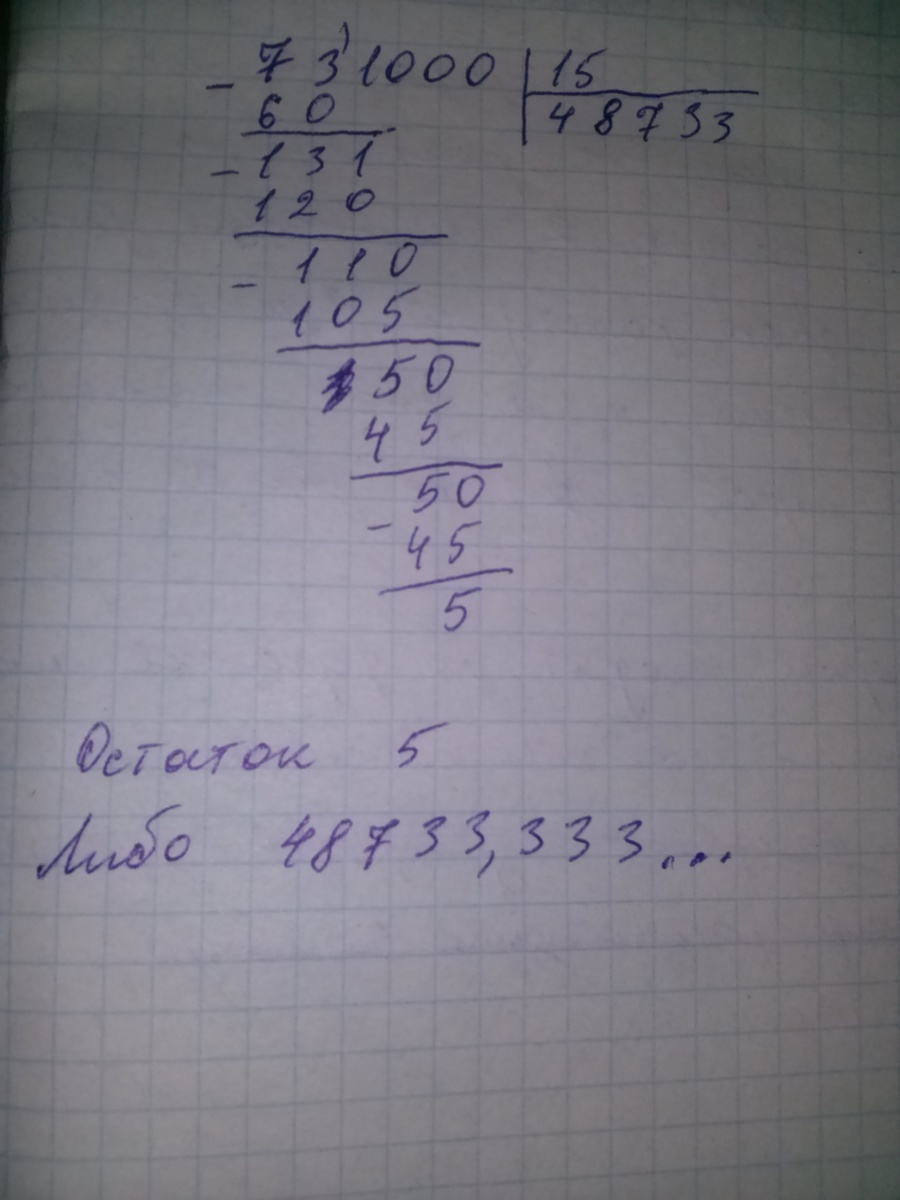 - 73)1000 | 15
60 | 48733
- 131
120
- 110
105
50
45
50
- 45
5
Остаток 5
Либо 48733,333...